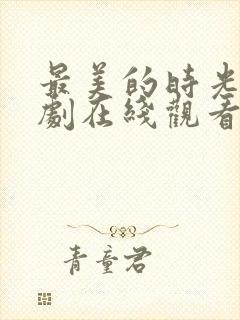 最美的時光
劇在綫觀看
青童君